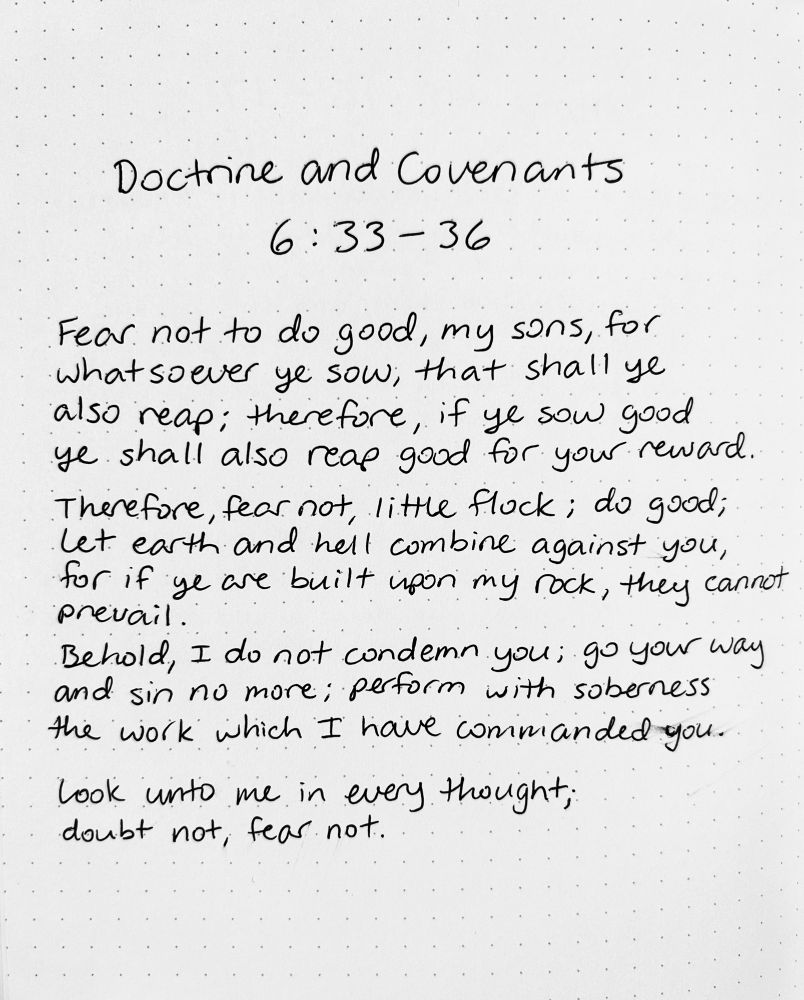 Doctrine and Covenants
6:33-36
Fear not to do good, my sons, for
whatsoever ye sow, that shall ye
also reap; therefore, if ye sow good
ye shall also reap good for your reward.
Therefore, fear not, little flock; do good;
let earth and hell combine against you,
for if ye are built upon my rock, they cannot
prevail.
Behold, I do not condemn you; go your way
and sin no more; perform with soberness
the work which I have commanded you.
Look unto me in every thought;
doubt not, fear not.